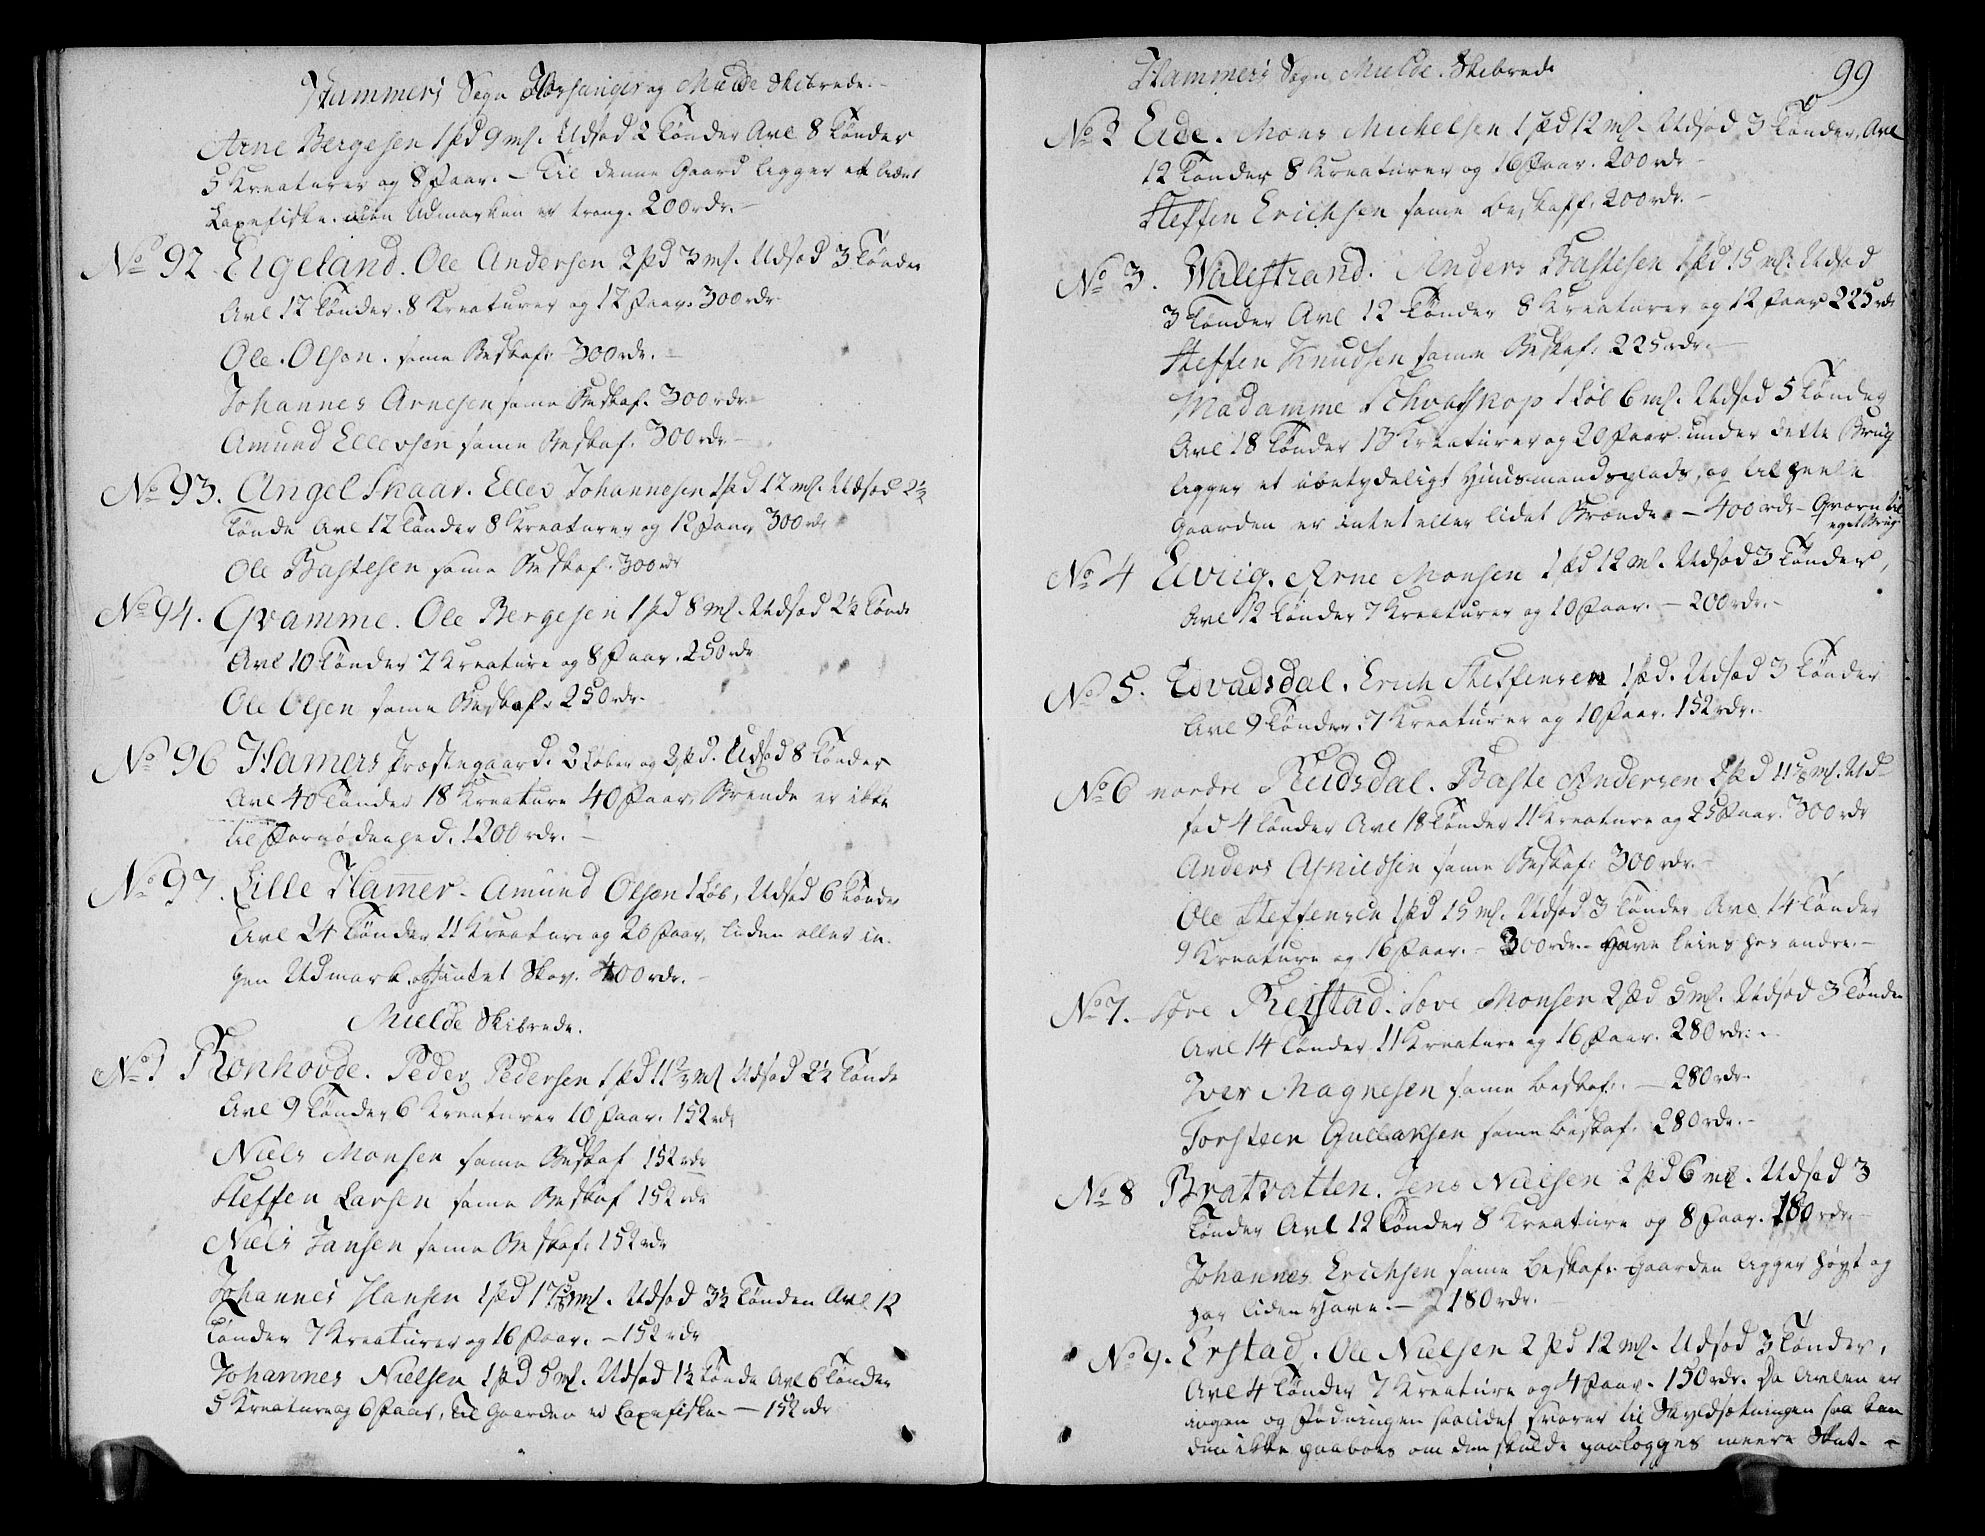 Hammers Sogn Herfanger og Mielde Skibrede.
Arne Bergesen 1 pd 9 ml. Udsæd 2 Tønder Avl 8 Tønder
5 Kreaturer og 8 Faar. – Til denne Gaard ligger et lidet
Laxefiske. Udmarken er trang. 200 rdr.
No 92. Eigeland. Ole Andersen 2 pd 3 ml. Udsæd 3 Tønder
Avl 12 Tønder. 8 Kreaturer og 12 Faar. 300 rdr.
Ole Olson. same Beskaf: 300 rdr.
Johannes Arnesen same Beskaf. 300 rdr.
Amund Ellersen same Beskaf. 300 rdr.
No 93. Angel Skaar. Elles Johannesen 1 pd 12 ml. Udsæd 2½
Tønde Avl 12 Tønder 8 Kreaturer og 12 Faar 300 rdr
Ole Bastesen same Beskaf. 300 rdr
No 94. Gramme. Ole Bergesen 1 pd 8 ml. Udsæd 2½ Tønde
Avl 10 Tønder 7 Kreature og 8 Faar. 250 rdr
Ole Olsen same Beskaf. 250 rdr.
No 96 Hamers Præstegaard. 2 Løber og 2 pd. Udsæd 8 Tønder
Avl 40 Tønder 18 Kreature 40 Faar. Brende er ikke
til Fornødenhed. 1200 rdr.
No 97. Lille Hamer. Amund Olson 1 Løb, Udsæd 6 Tønder
Avl 24 Tønder 11 Kreature og 20 Faar, liden eller in-
gen Udmark og intet Skov. 400 rdr.
Mielde Skibrede.
No 1 Rønhovde. Peder Pedersen 1 pd 11⅔ ml Udsæd 2½ Tønde
Avl 9 Tønder 6 Kreaturer 10 Faar. 152 rdr
Niels Monsen same Beskaf 152 rdr
Steffen Larsen same Beskaf 152 rdr
Niels Jansen same Beskaf: 152 rdr
Johannes Hansen 1 pd 17 ml. Udsæd 3½ Tønder Avl 12
Tønder 7 Kreaturer og 16 Faar. – 152 rdr
Johannes Nielsen 1 pd 5 ml. Udsæd 1½ Tønde Avl 6 Tønder
5 Kreature og 6 Faar, Til Gaarden er Laxefiske. – 152 rdr
Hammers Sogn Mielde. Skibrede
99
No 2 Eide. Mons Michelsen 1 pd 12 ml. Udsæd 3 Tønder, Avl
12 Tønder 8 Kreaturer og 16 Faar. 200 rdr
Steffen Erichsen same beskaff. 200 rdr.
No 3. Walestrand. Anders Bastesen 1 pd 15 ml. Udsæd
3 Tønder Avl 12 Tønder 8 Kreaturer og 12 Faar 225 rdr
Steffen Knudsen same Beskaf. 225 rdr.
Madamme Schvartskop 1 Løb 6 ml. Udsæd 5 Tønder
Avl 18 Tønder 13 Kreaturer og 20 Faar. under dette Brug
ligger et ubetydeligt Huusmandsplads, og til heele
Gaarden er intet eller lidet Brænde. – 400 rdr – Qværn til
eget Brug
No 4 Elviig. Arne Monsen 1 pd 12 ml. Udsæd 3 Tønder,
Avl 12 Tønder 7 Kreaturer og 10 Faar. – 200 rdr.
No 5. Edvadsdal. Erich Steffensen 1 pd. Udsæd 3 Tønder
Avl 9 Tønder. 7 Kreaturer og 10 Faar. 152 rdr.
No 6 nordre Reidsdal. Baste Andersen 2 pd 11 ml. Ud-
sæd 4 Tønder Avl 18 Tønder 11 Kreature og 25 Faar. 300 rdr
Anders same Beskaf: 300 rdr.
Ole Steffensen 1 pd 15 ml. Udsæd 3 Tønder Avl 14 Tønder
9 Kreature og 16 Faar. – 300 rdr. – Have leies hos andre. –
No 7. Søre Reistad. Tore Monsen 2 pd 5 ml. Udsæd 3 Tønder
Avl 14 Tønder 11 Kreature og 16 Faar. 280 rdr.
Iver Magnesen same beskaf: – 280 rdr.
Torsteen Gullaksen same beskaf. 280 rdr.
No 8 Bratvatten. Jens Nielsen 2 pd 6 ml. Udsæd 3
Tønder Avl 12 Tønder 8 Kreature og 8 Faar. 180 rdr.
Johannes Erichsen same beskaf. Gaarden ligger høyt og
har liden Have. – 180 rdr.
No 9. Erstad. Ole Nielsen 2 pd 12 ml. Udsæd 3 Tønder,
Avl 4 Tønder 7 Kreature og 4 Faar. 150 rdr. Da Avlen er
ingen og Fødningen saa lidet svarer til Skyldsætningen saa kan
den ikke paaboes om den skulde paalegges meere Skat. –